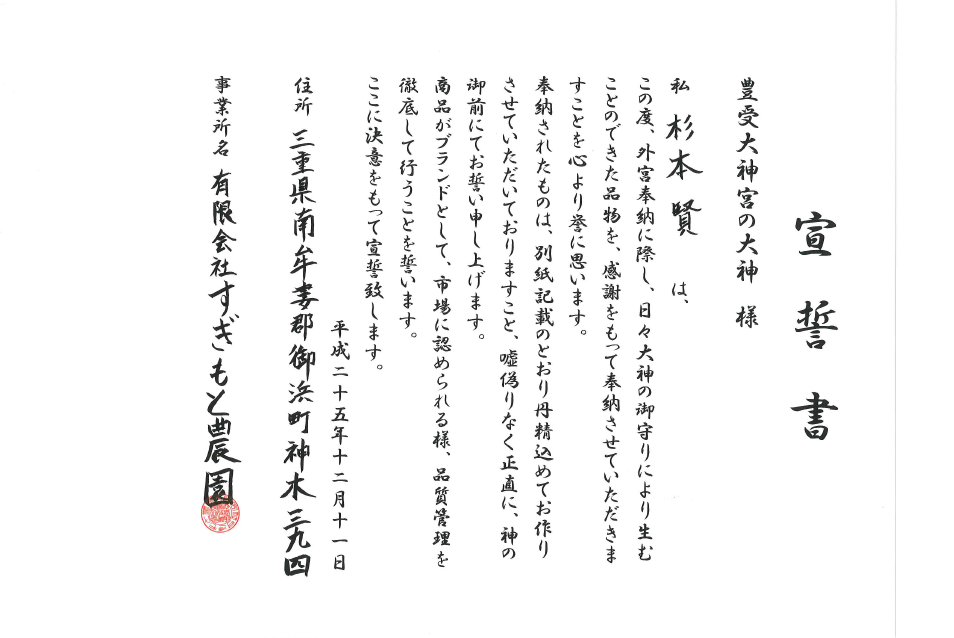 宣誓書
豊受大神宮の大神 様
私 杉本賢 は、
この度、外宮奉納に際し、日々大神の御守りにより生む
ことのできた品物を、感謝をもって奉納させていただきま
すことを心より誉に思います。
奉納されたものは、別紙記載のとおり丹精込めてお作り
させていただいておりますこと、嘘偽りなく正直に、神の
御前にてお誓い申し上げます。
商品がブランドとして、市場に認められる様、品質管理を
徹底して行うことを誓います。
ここに決意をもって宣誓致します。
平成二十五年十二月十一日
住所 三重県南牟婁郡御浜町神木三九四
事業所名 有限会社すぎもと農園